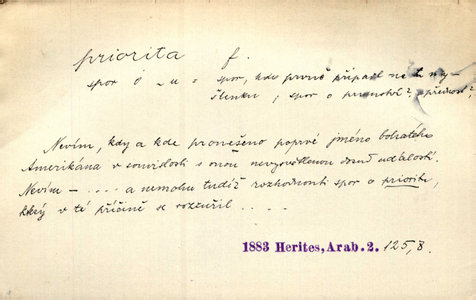 priorita f.
spor o -u = spor, kdo prvně připadl na t. my-
šlenku; spor o prvnost?, přednost?
Nevím, kdy a kde proneseno poprvé jméno bohatého
Amerikána v souvislosti s onou nevysvětlenou dosud událostí.
Nevím – .... a nemohu tudíž rozhodnouti spor o prioritu,
který v té příčině se rozzuřil ....
1883 Herites, Arab. 2. 125, 8.